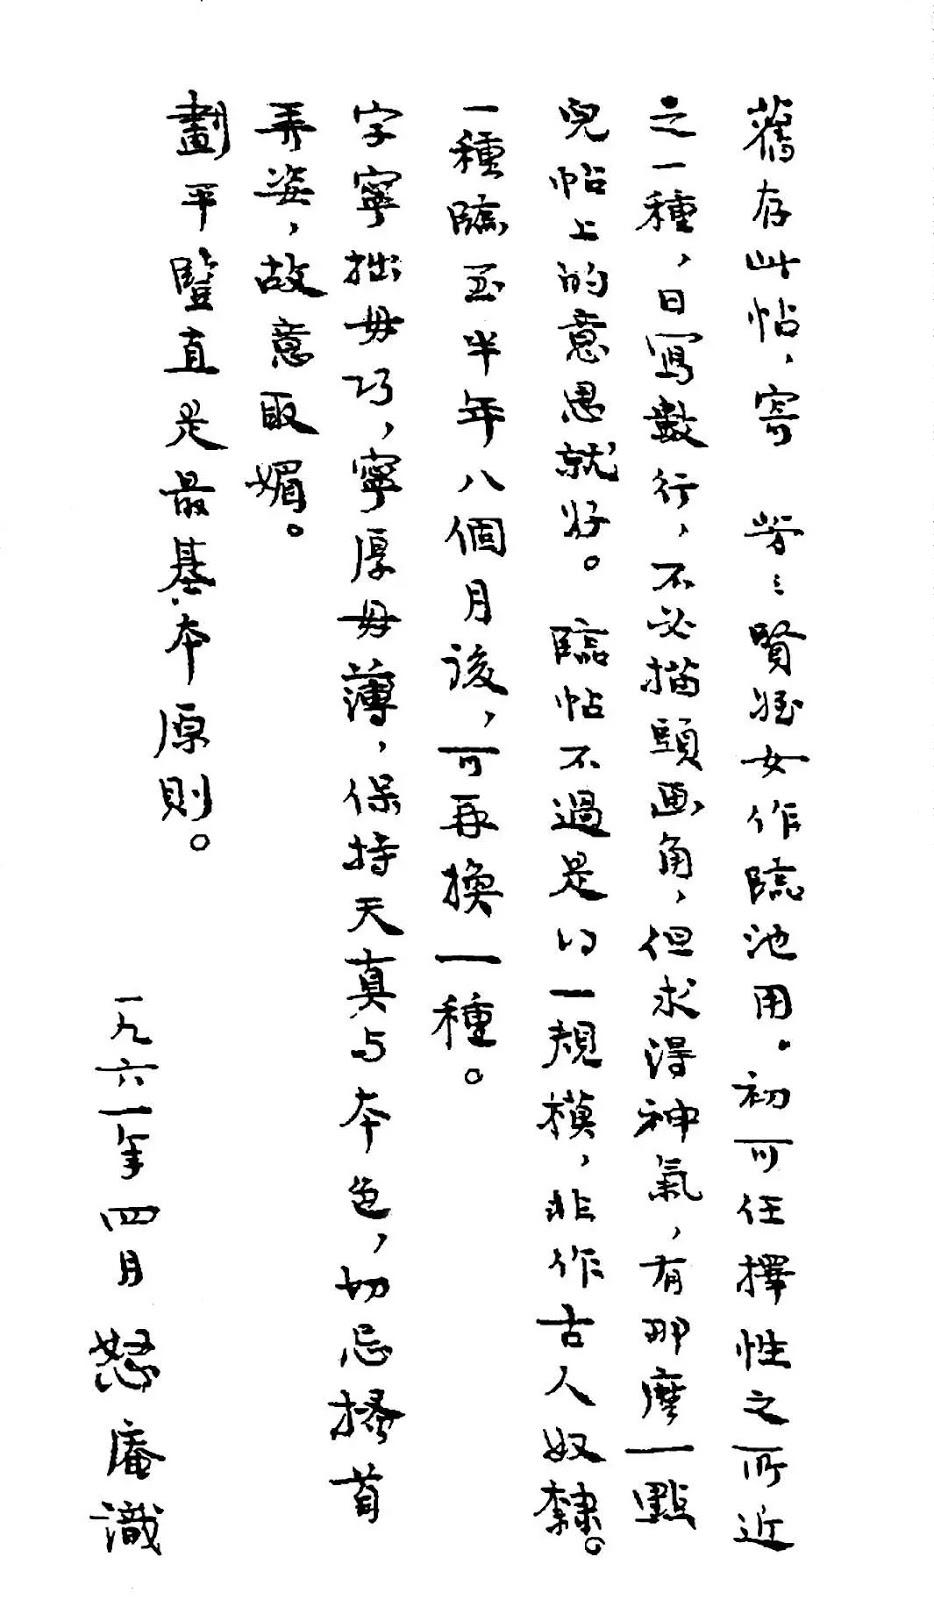 舊存此帖，寄 賢姪女作臨池用。初可任擇性之所近
之一種，日寫數行，不必描頭画角，但求得神氣，有那麼一點
兒帖上的意思就好。臨帖不過是得一規模，非作古人奴隸。
一種臨至半年八個月後，可再換一種。
字寧拙毋巧，寧厚毋薄，保持天真与本色，切忌搔首
弄姿，故意取媚。
劃平豎直是最基本原則。
一九六一年四月 怒庵識